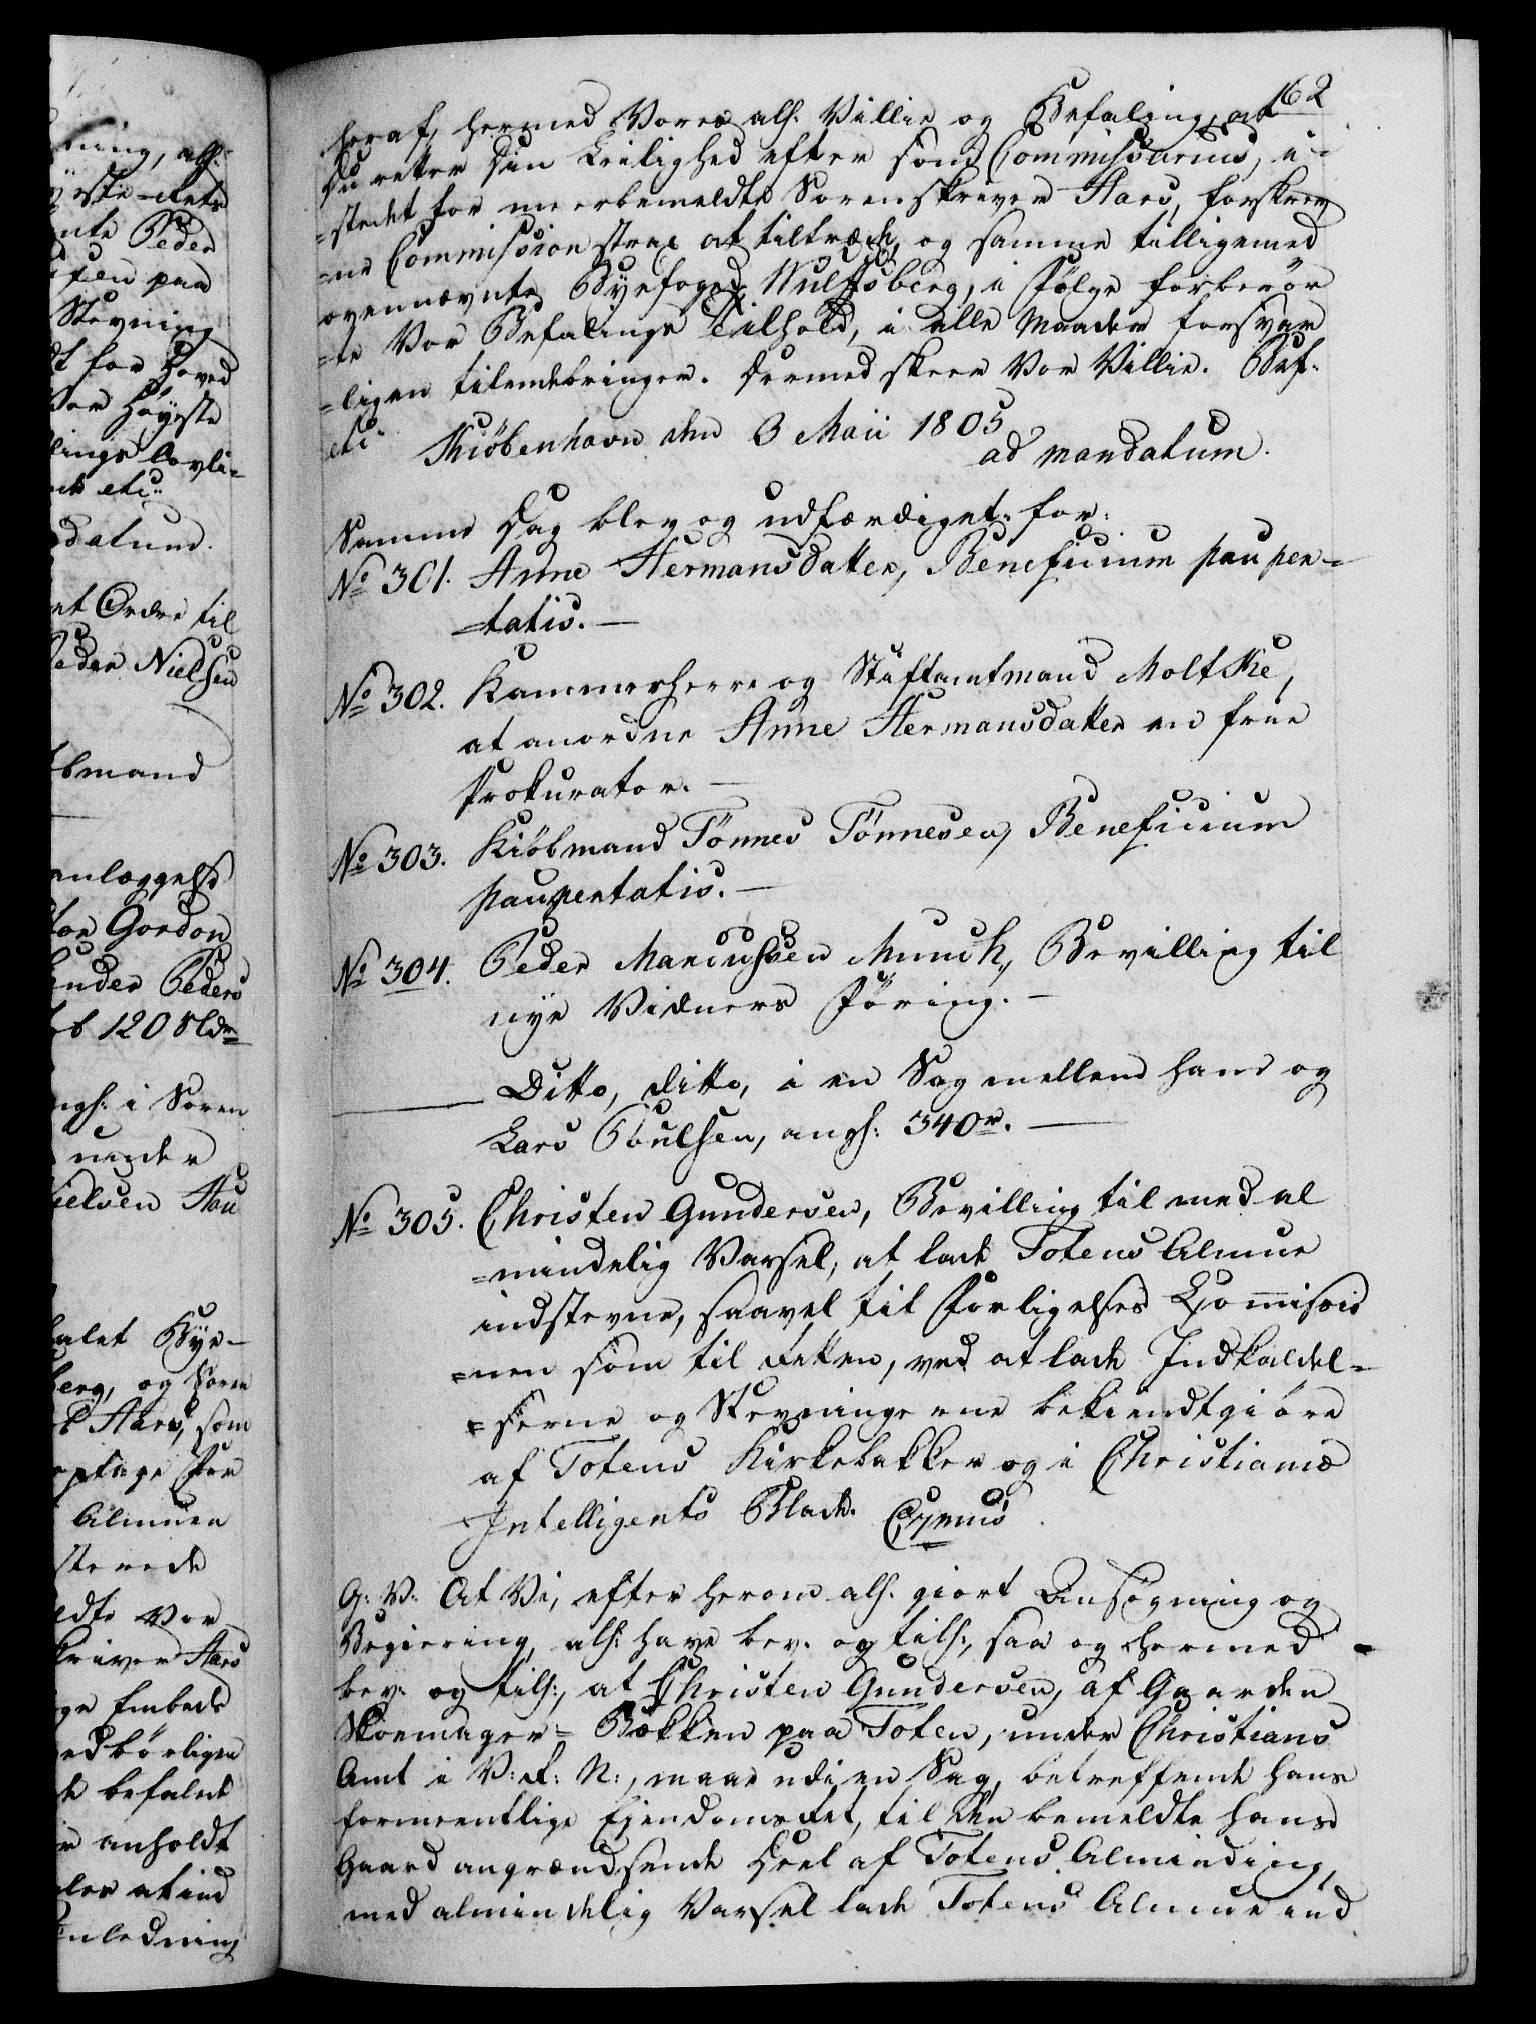 162
heraf, hermed Vores alh: Villie og Befaling, at
Du retter din Leilighed efter som Commissarius, i-
=stedet for meerbemeldte Sorenskriver Aars, forskrev
=ne Commission strax at tiltræde, og samme tilligemed
ovennævnte Byefoged Wulfsberg, i Følge forberör
=te Vor Befalings Tilhold, i alle Maader forsvar
=ligen tilendebringer. Dermed skeer Vor Villie. Bef:
etc: Kiöbenhavn den 3 Maii 1805
ad mandatum.
Samme Dag blev og udfærdiget for:
No 301. Anne Hermansdatter, Beneficium pauper=
=tatis. —
No 302. Kammerherre og Stiftamtmand Moltke,
at anordne Anne Hermansdatter en frie
Prokurator. —
No 303. Kiöbmand Tönnes Tönnesen, Beneficium
paupertatis. —
No 304. Peder Marcussen Munch, Bevilling til
nye Vidners Föring. —
Ditto, ditto, i en Sag mellem ham og
Lars Poulsen, angh: 340 r. —
No 305. Christen Gundersen, Bevilling til med al
=mindelig Varsel, at lade Totens Almue
indstevne, saavel til Forligelses Commissio
=nen som til Retten, ved at lade Indkaldel=
=serne og Stevningerne bekiendtgiöre
af Totens Kirkebakker og i Christianiæ
Intelligents Blade.
G: V: At Vi, efter herom alh: giort Ansögning og
Begiering, alh: have bev: og tilh:, saa og hermed
bev: og tilh:, at Christen Gundersen, af Gaarden
Skoemager= Bakken paa Toten, under Christians
Amt i V: R: N:, maae udi en Sag, betreffende hans
formeentlige Ejendoms Ret, til den bemeldte hans
Gaard angrændsende Deel af Totens Alminding,
med almindelig Varsel lade Totens Almue ind